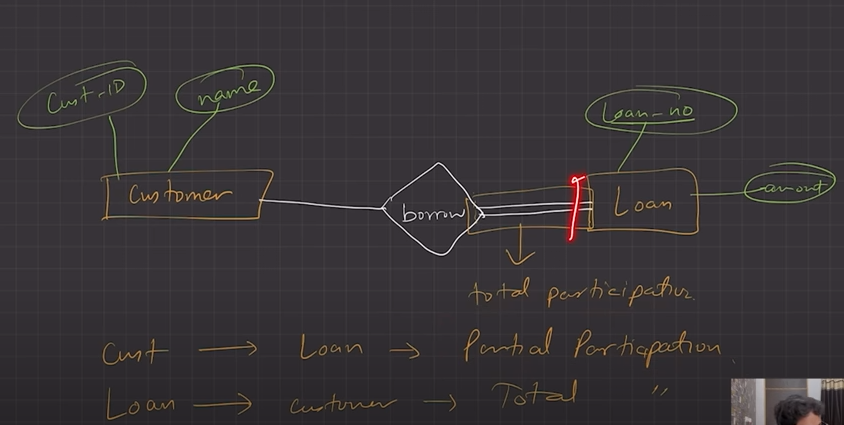 Cust-ID
name
Loan-no
Customer
borrow
Loan
amount
total participation
Cust → Loan → Partial Participation
Loan → customer → Total "